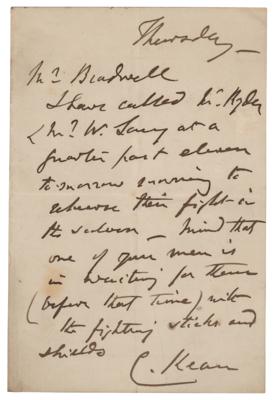 Thursday
Mr. Bradwell
I have called Mr. Ryder
& Mr. W. Lacy at a
quarter past eleven
to-morrow morning to
rehearse their fight in
the saloon — mind that
one of your men is
in waiting for them
(before that time) with
the fighting sticks and
shields
C. Kean